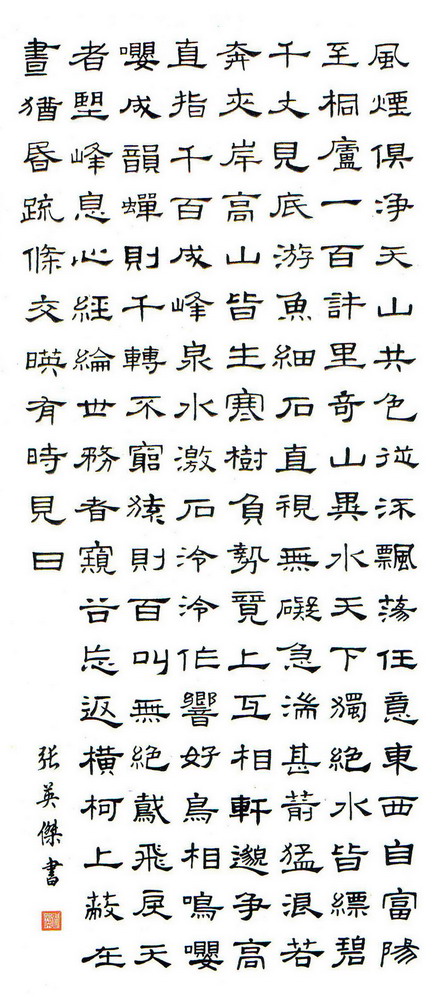 風煙俱淨天山共色從流飄蕩任意東西自富陽
至桐廬一百許里奇山異水天下獨絕水皆縹碧
千丈見底游魚細石直視無礙急湍甚箭猛浪若
奔夾岸高山皆生寒樹負勢競上互相軒邈爭高
直指千百成峰泉水激石泠泠作響好鳥相鳴嚶
嚶成韻蟬則千轉不窮猿則百叫無絕鳶飛戾天
者望峰息心經綸世務者窺谷忘返橫柯上蔽在
晝猶昏疏條交暎有時見日
張英傑書